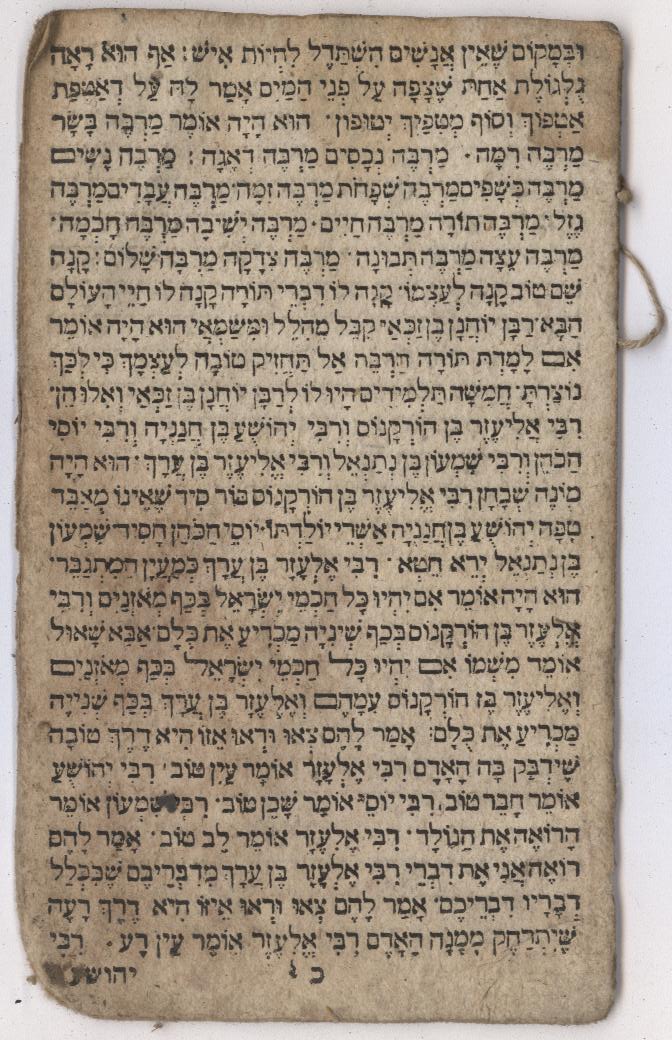 ובמקום שאין אנשים השתדל להיות איש: אף הוא ראה
גלגולת אחת שצפה על פני המים אמר לה על דאטפת
אטפוך וסוף מטפיך יטופון· הוא היה אומר מרבה בשר
מרבה רמה· מרבה נכסים מרבה דאגה: מרבה נשים
מרבה כשפים מרבה שפחות מרבה זמה· מרבה עבדים מרבה
גזל: מרבה תורה מרבה חיים· מרבה ישיבה מרבה חכמה·
מרבה עצה מרבה תבונה· מרבה צדקה מרבה שלום: קנה
שם טוב קנה לעצמו· קנה לו דברי תורה קנה לו חיי העולם
הבא· רבן יוחנן בן זכאי קבל מהלל ומשמאי הוא היה אומר
אם למדת תורה הרבה אל תחזיק טובה לעצמך כי לכך
נוצרת· חמשה תלמידים היו לו לרבן יוחנן בן זכאי ואלו הן·
רבי אליעזר בן הורקנוס ורבי יהושע בן חנניה ורבי יוסי
הכהן ורבי שמעון בן נתנאל ורבי אליעזר בן ערך· הוא היה
מונה שבחן רבי אליעזר בן הורקנוס בור סיד שאינו מאבד
טפה יהושע בן חנניה אשרי יולדתו· יוסי הכהן חסיד· שמעון
בן נתנאל ירא חטא· רבי אלעזר בן ערך כמעין המתגבר·
הוא היה אומר אם יהיו כל חכמי ישראל בכף מאזנים ורבי
אלעזר בן הורקנוס בכף שינייה מכריע את כלם· אבא שאול
אומר משמו אם יהיו כל חכמי ישראל בכף מאזנים
ואליעזר בן הורקנוס עמהם ואלעזר בן ערך בכף שנייה
מכריע את כלם: אמר להם צאו וראו איזו היא דרך טובה
שידבק בה האדם רבי אלעזר אומר עין טוב· רבי יהושע
אומר חבר טוב· רבי יוסי אומר שכן טוב· רבי שמעון אומר
הרואה את הנולד· רבי אלעזר אומר לב טוב· אמר להם
רואה אני את דברי רבי אלעזר בן ערך מדבריכם שבכלל
דבריו דבריכם· אמר להם צאו וראו איזו היא דרך רעה
שיתרחק ממנה האדם רבי אלעזר אומר עין רע· רבי
כ ל יהושע